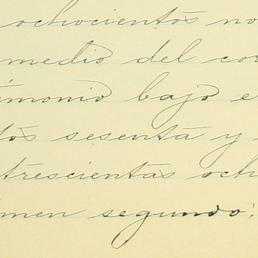 ochocientos no
medio del co
imonio bajo e
tos sesenta y
trescientas och
men segundo.